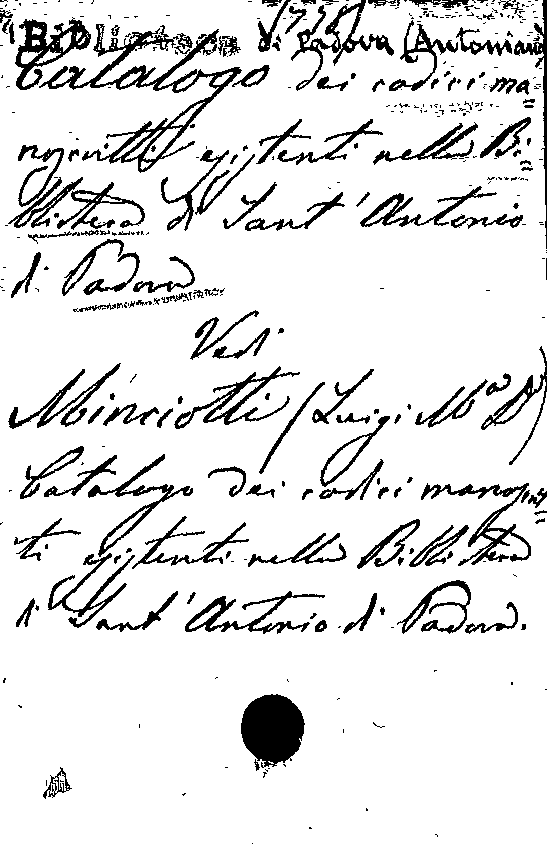 Biblioteca di Padova (Antoniana)
Catalogo dei codici ma=
noscritti esistenti nella Bi=
blioteca di Sant' Antonio
di Padova
Vedi
Minciotti (Luigi Mª Dr)
Catalogo dei codici manoscrit=
ti esistenti nella Biblioteca
di Sant' Antonio di Padova.